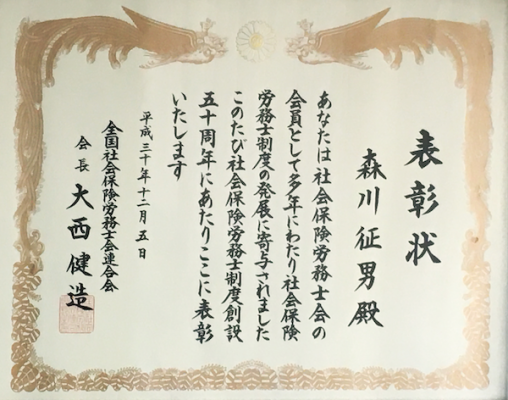 表彰状
森川征男殿
あなたは社会保険労務士会の
会員として多年にわたり社会保険
労務士制度の発展に寄与されました
このたび社会保険労務士制度創設
五十周年にあたりここに表彰
いたします
平成三十年十二月五日
全国社会保険労務士会連合会
会長 大西健造